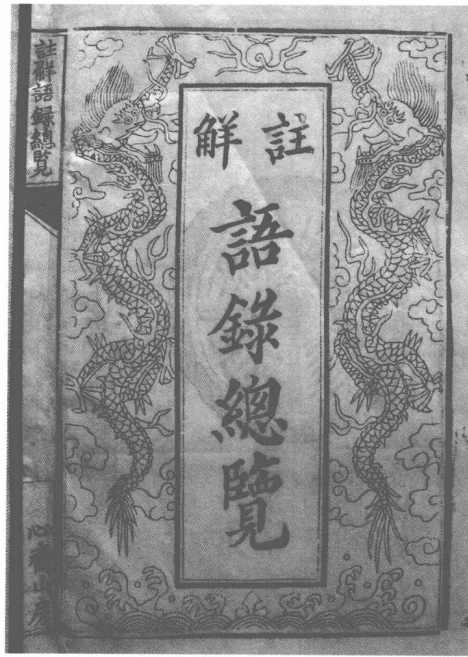 註解
語錄總覽
註解語錄總覽